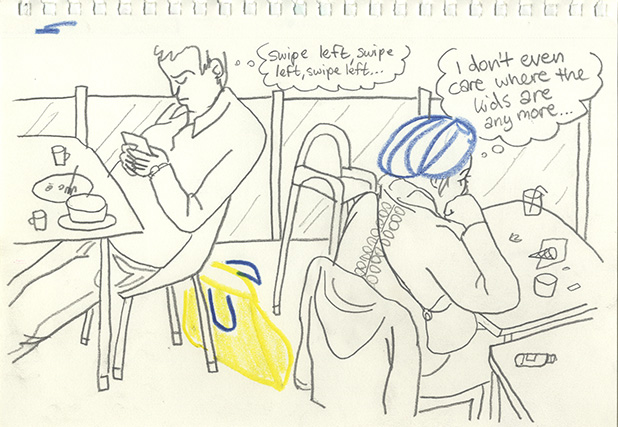 Swipe left, swipe
left, swipe left...
I don't even
care where the
kids are
any more...